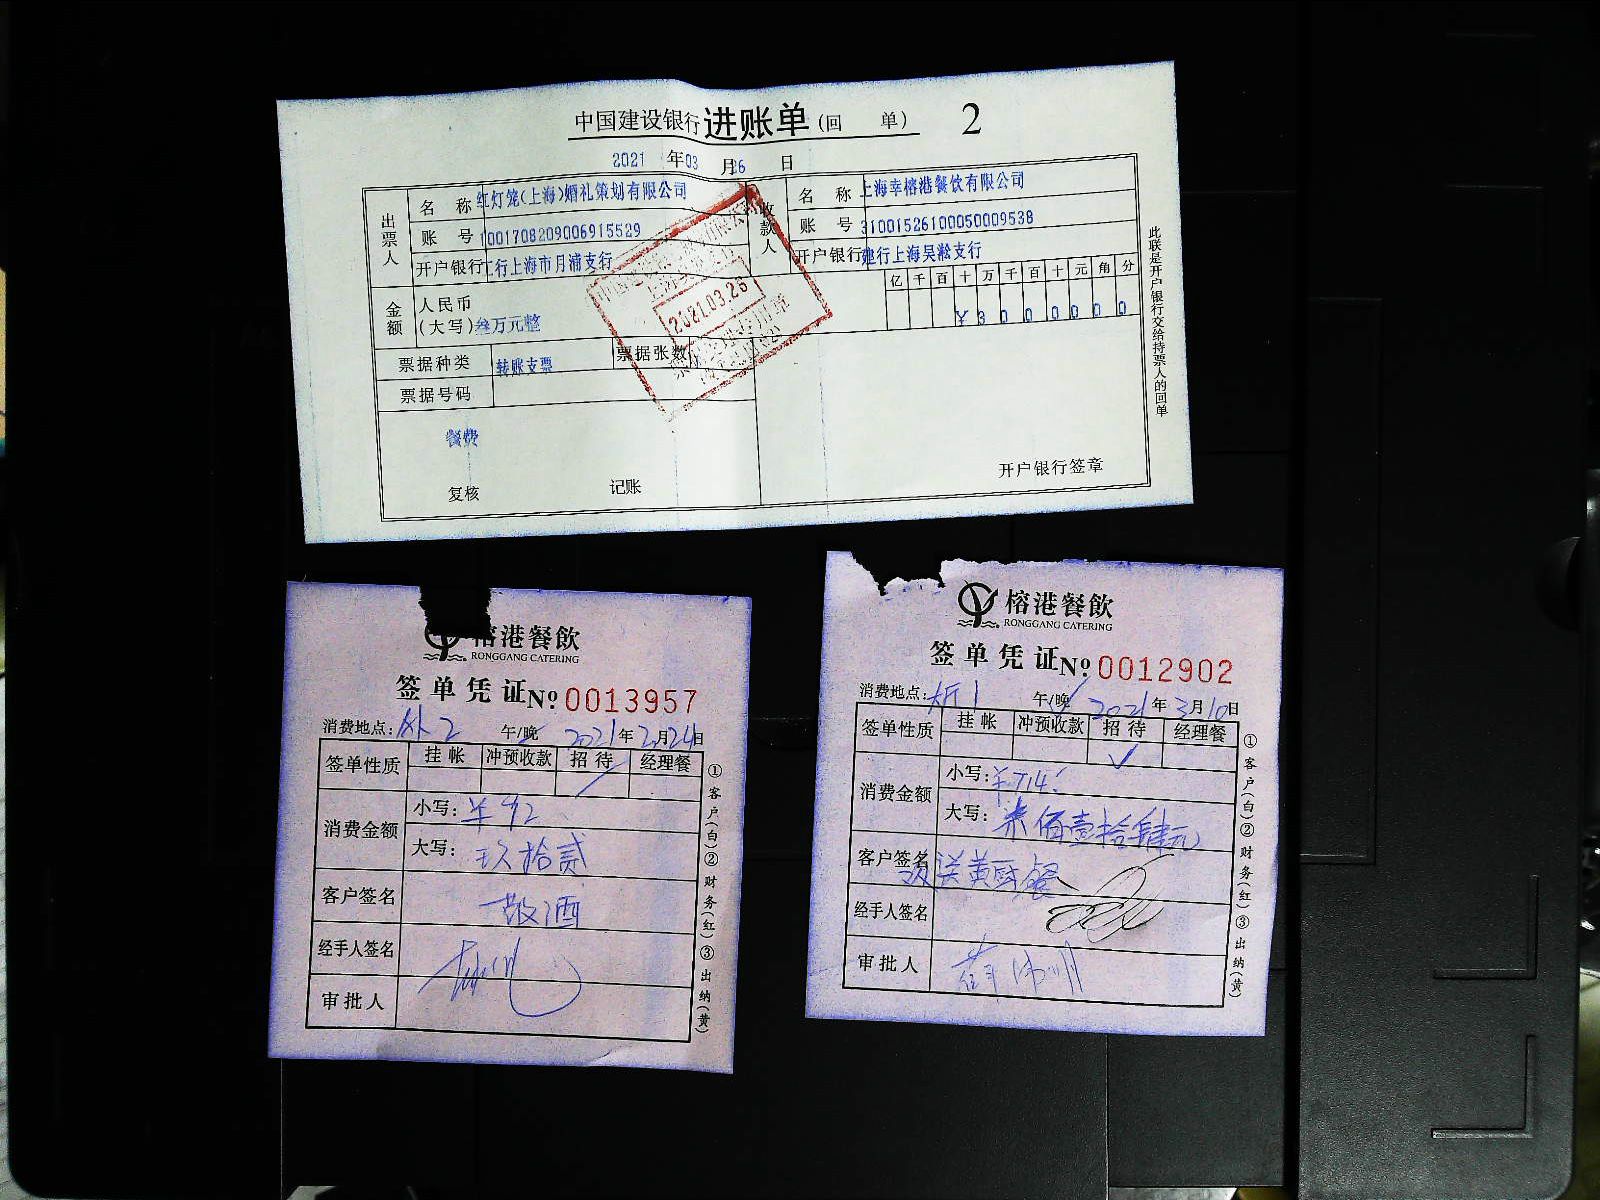 中国建设银行 进账单 (回 单) 2
2021 年 03 月 26 日
出票人 名 称 红灯笼(上海)婚礼策划有限公司
账 号 1001708209006915529
开户银行 工行上海市月浦支行
收款人 名 称 上海幸榕港餐饮有限公司
账 号 31001526100050009538
开户银行 建行上海吴淞支行
金额 人民币(大写) 叁万元整
亿 千 百 十 万 千 百 十 元 角 分
¥ 3 0 0 0 0 0 0
票据种类 转账支票 票据张数
票据号码
2021.03.26
餐费
复核 记账
开户银行签章
此联是开户银行交给持票人的回单
榕港餐飲
RONGGANG CATERING
签单凭证 No 0013957
消费地点: 外2 午/晚 2021年2月24日
签单性质 挂帐 冲预收款 招待 经理餐
消费金额 小写: ¥92
大写: 玖拾贰
客户签名 敬酒
经手人签名
审批人
①客户(白)②财务(红)③出纳(黄)
榕港餐飲
RONGGANG CATERING
签单凭证 No 0012902
消费地点: 午/晚 2021年3月10日
签单性质 挂帐 冲预收款 招待 经理餐
✓
消费金额 小写: ¥714
大写: 柒佰壹拾肆元
客户签名
经手人签名
审批人
①客户(白)②财务(红)③出纳(黄)